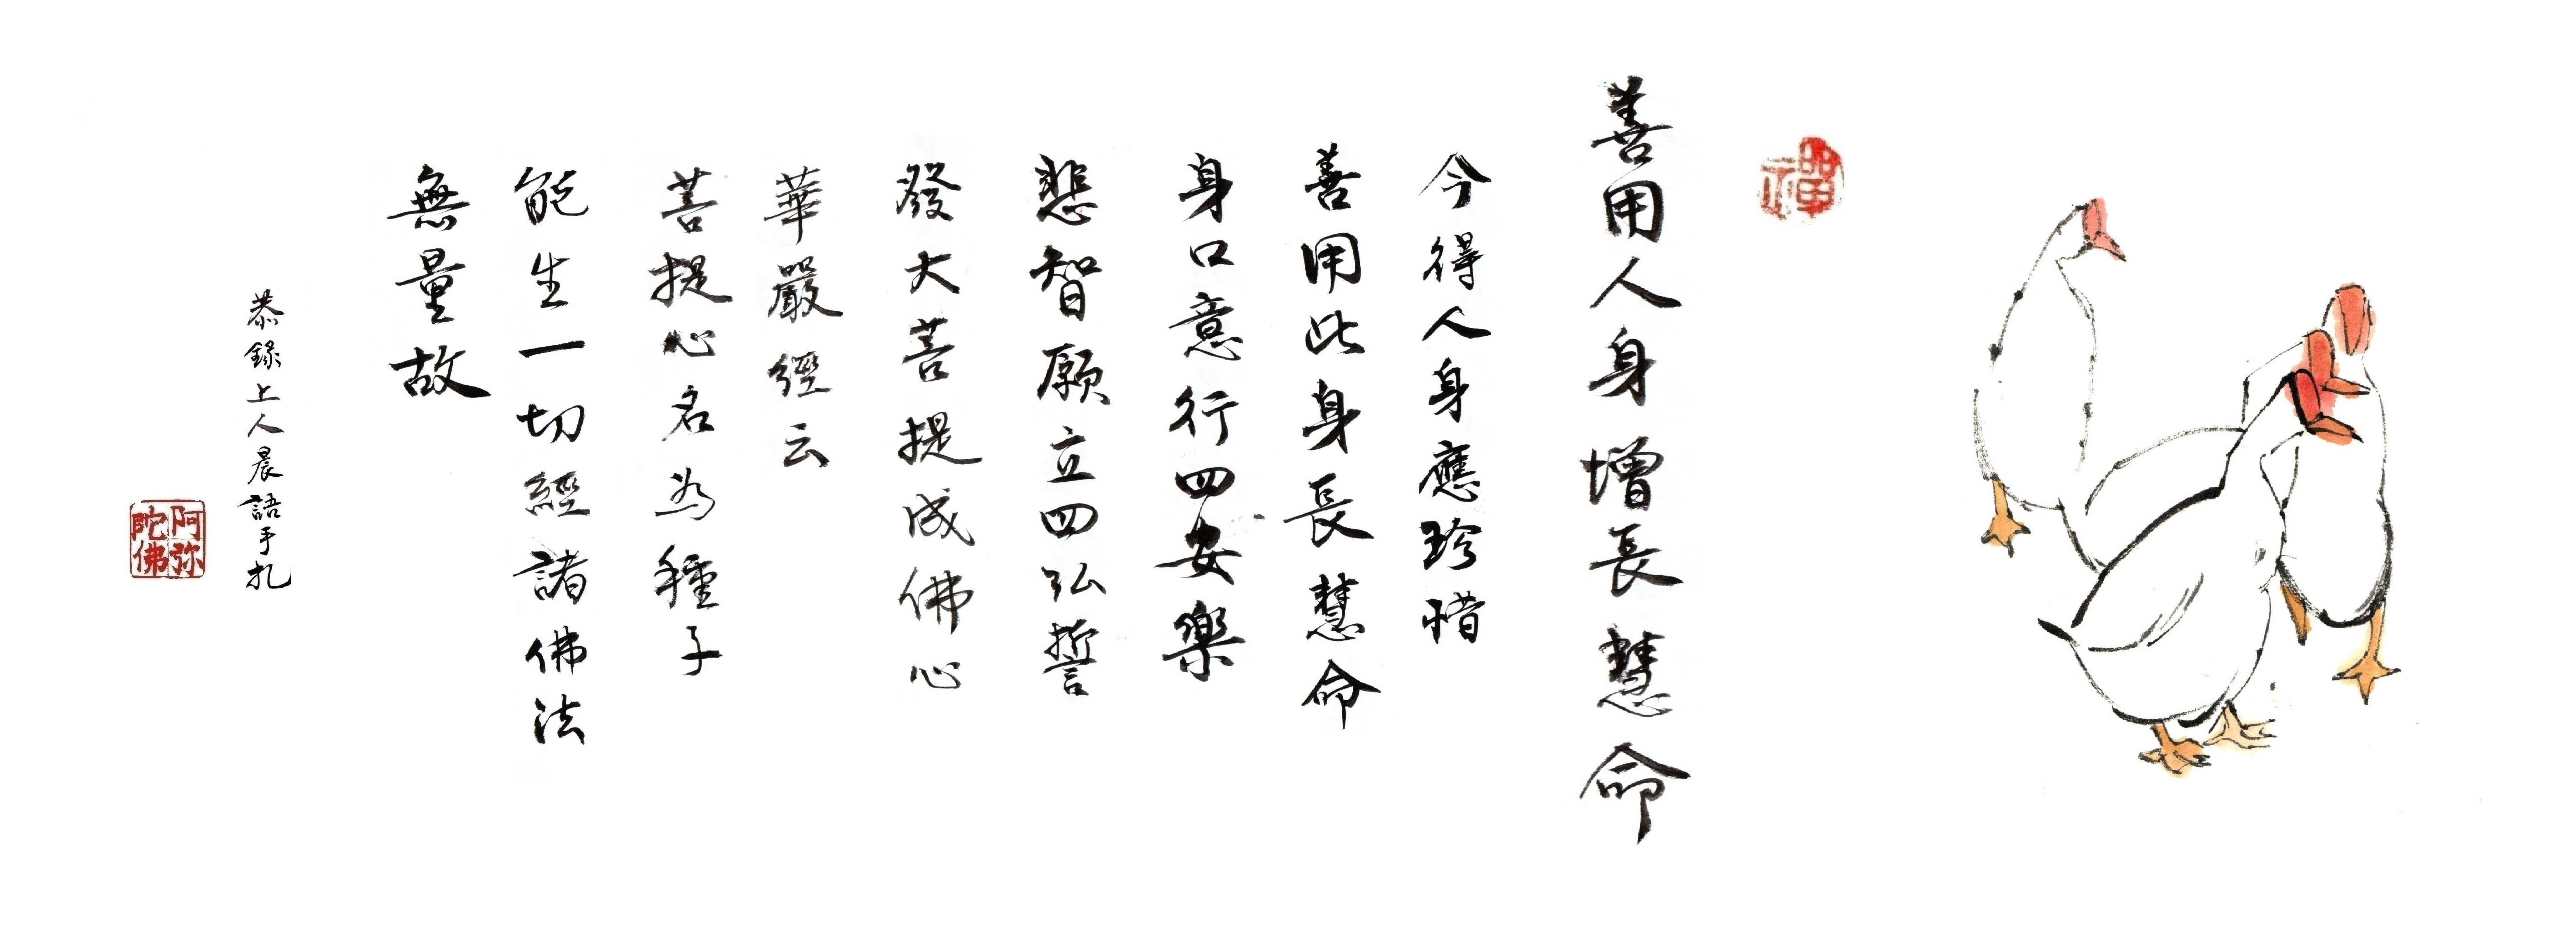 禪
善用人身增長慧命
今得人身應珍惜
善用此身長慧命
身口意行四安樂
悲智願立四弘誓
發大菩提成佛心
華嚴經云
菩提心名為種子
能生一切經諸佛法
無量故
恭錄上人晨語手扎
阿弥陀佛